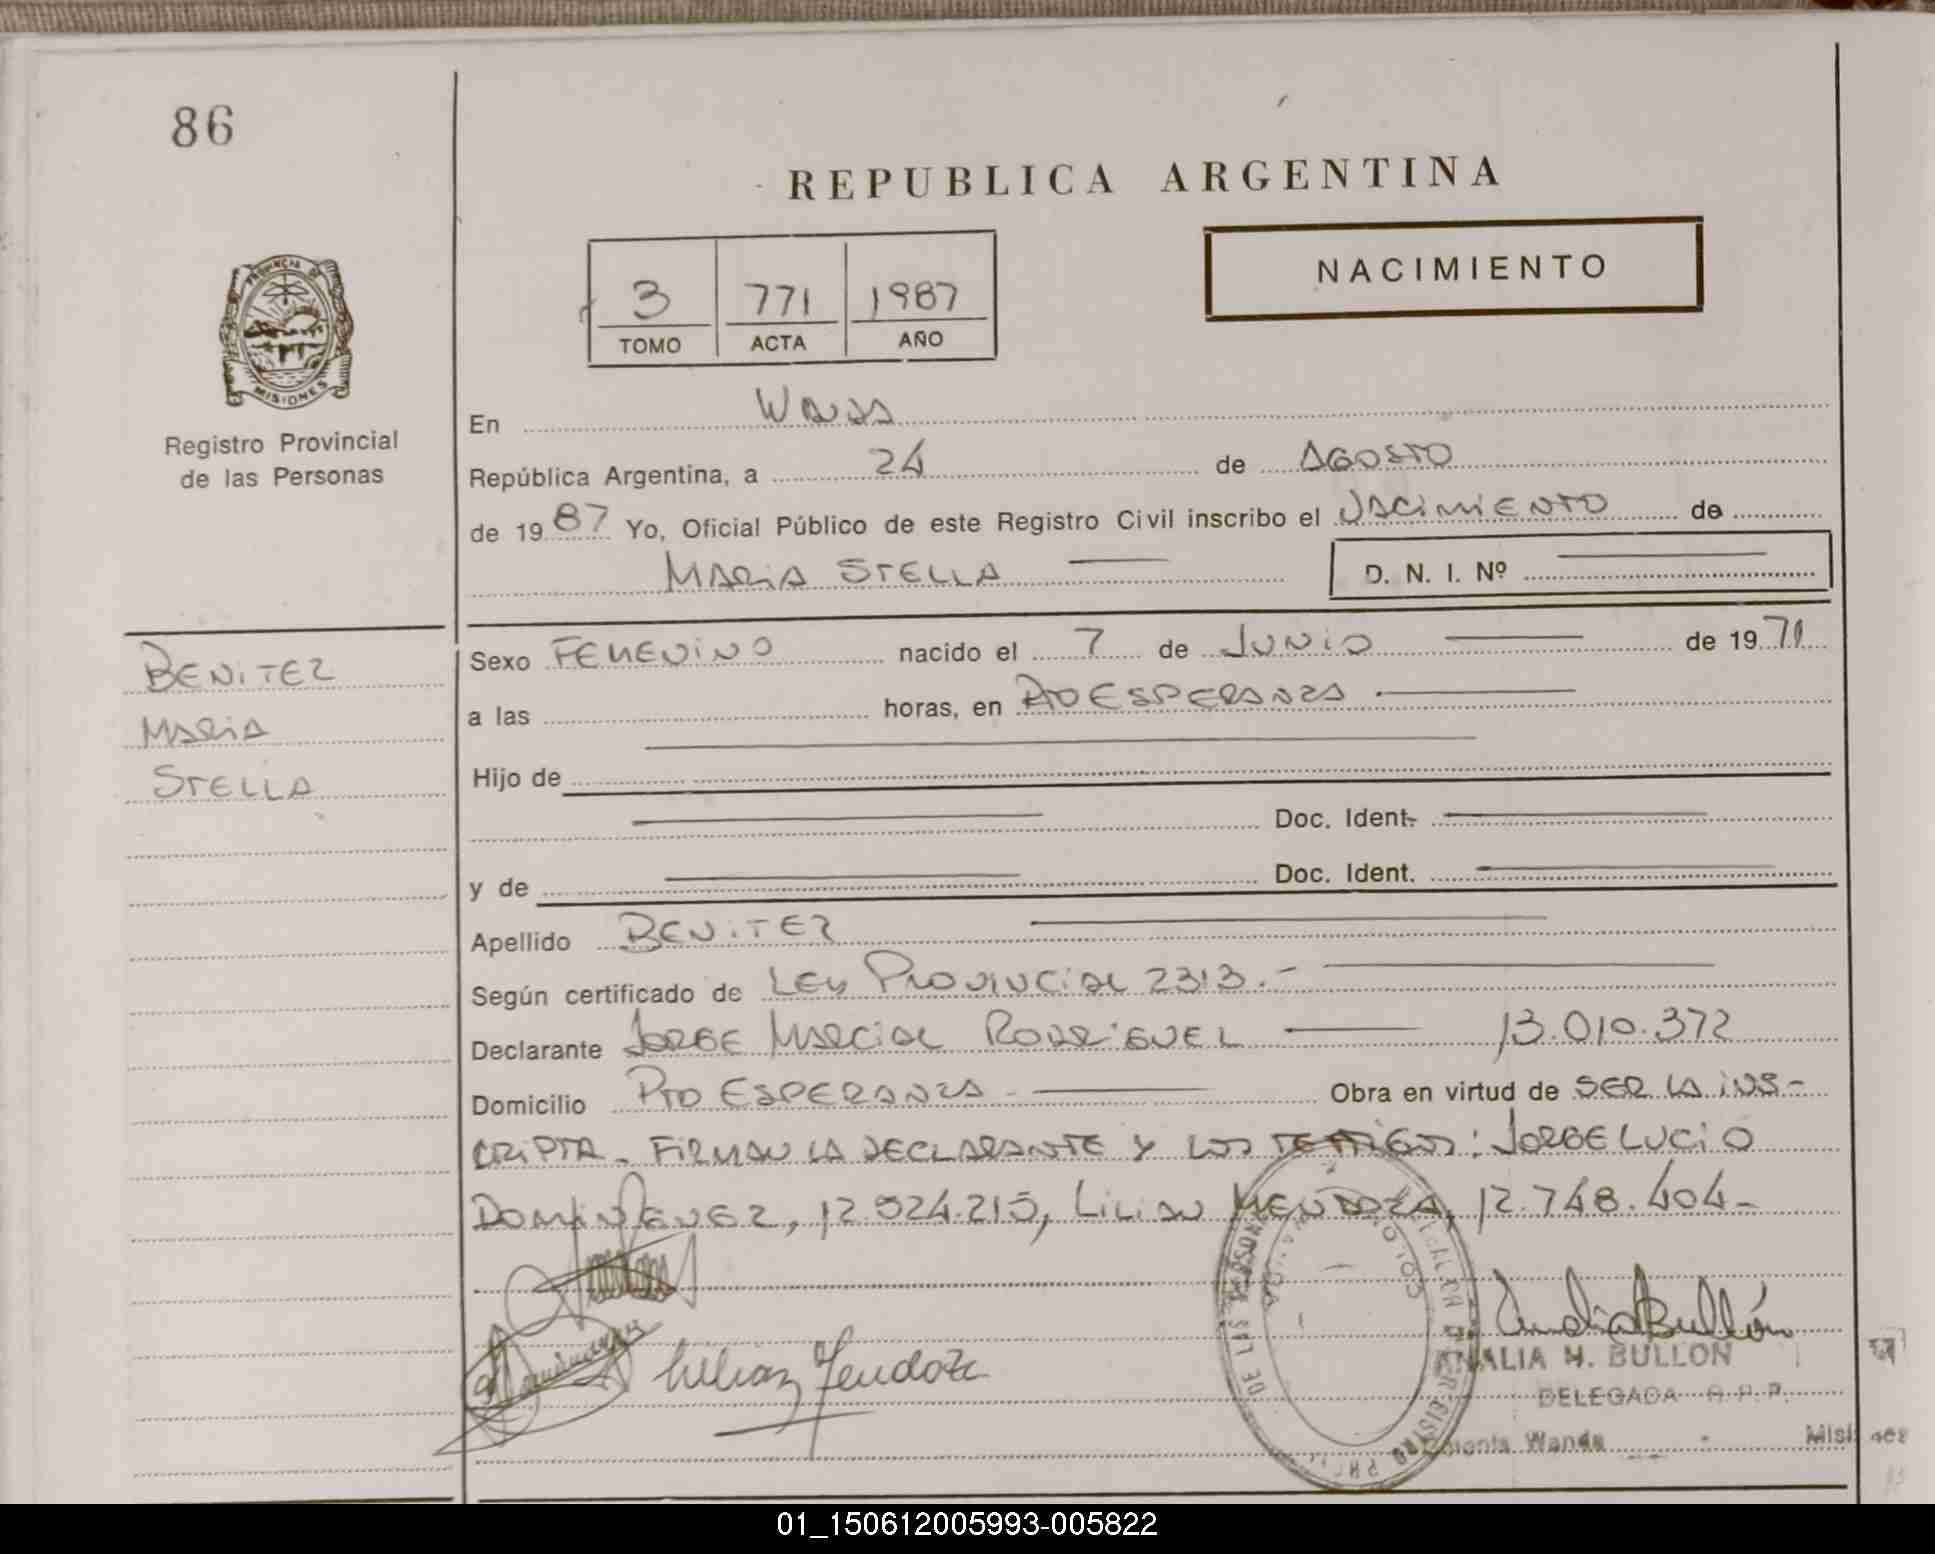 86
REPUBLICA ARGENTINA
NACIMIENTO
3 771 1987
TOMO ACTA AÑO
PROVINCIA DE MISIONES
Registro Provincial
de las Personas
En WANDA
República Argentina, a 24 de AGOSTO
de 1987 Yo, Oficial Público de este Registro Civil inscribo el NACIMIENTO de
MARIA STELLA D. N. I. Nº
BENITEZ
MARIA
STELLA
Sexo FEMENINO nacido el 7 de JUNIO de 1971
a las horas, en PTO ESPERANZA
Hijo de
Doc. Ident.
y de Doc. Ident.
Apellido BENITEZ
Según certificado de LEY PROVINCIAL 2313.-
Declarante JORGE MARCIAL RODRIGUEZ 13.010.372
Domicilio PTO ESPERANZA Obra en virtud de SER LA INS-
CRIPTA. FIRMAN LA DECLARANTE Y LOS TESTIGOS: JORGE LUCIO
DOMINGUEZ, 12.924.215, LILIAN MENDOZA, 12.748.404-
Lilian Mendoza
Analia Bullón
ANALIA H. BULLON
DELEGADA R.P.P.
Colonia Wanda Misiones
DE LAS PERSONAS
01_150612005993-005822